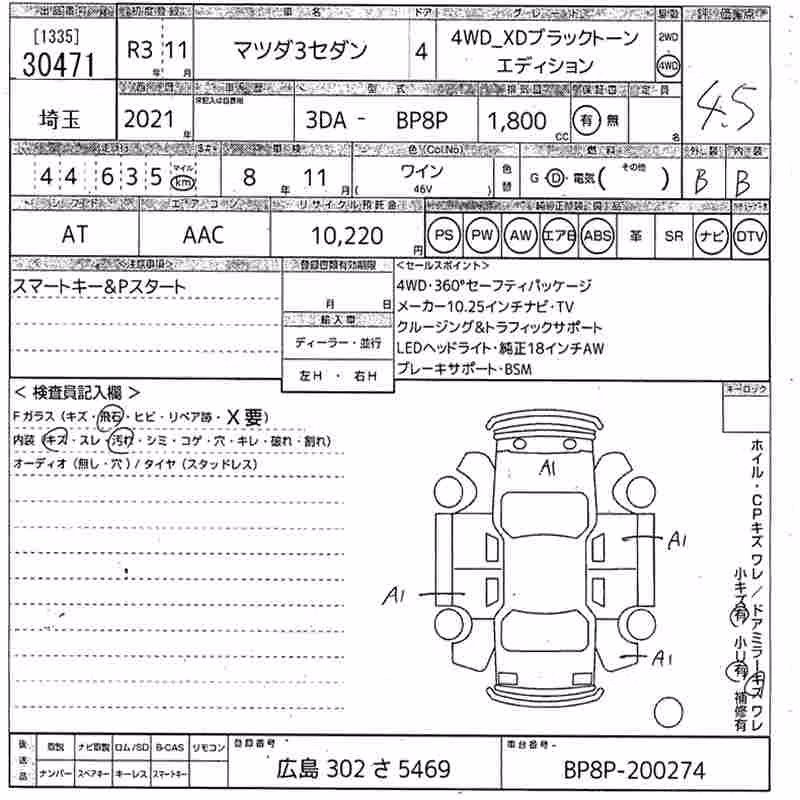 出品番号 初度登録 車名 ドア グレード 駆動 評価点
[1335]
30471 R3年 11月 マツダ3セダン 4 4WD_XDブラックトーン エディション 2WD 4WD 4.5
車歴 型式 排気量 保証書 定員
埼玉 2021年 未記入は自家用 3DA - BP8P 1,800cc 有 無 名
走行 車検 色(Col.No) 燃料 外装 内装
44,635 マイル km 8年 11月 ワイン 46V 色替 G・D・電気( その他 ) B B
シフト エアコン リサイクル預託金 純正装備品
AT AAC 10,220円 PS PW AW エアB ABS 革 SR ナビ DTV
注意事項 登録書類有効期限 <セールスポイント>
スマートキー&Pスタート
月 日
輸入車
ディーラー・並行
左H・右H
4WD・360°セーフティパッケージ
メーカー10.25インチナビ・TV
クルージング&トラフィックサポート
LEDヘッドライト・純正18インチAW
ブレーキサポート・BSM
<検査員記入欄>
Fガラス(キズ・飛石・ヒビ・リペア跡・X要)
内装(キズ・スレ・汚れ・シミ・コゲ・穴・キレ・破れ・割れ)
オーディオ(無し・穴)/タイヤ(スタッドレス)
キーロック
A1
A1
A1
A1
ホイル・CPキズワレ/ドアミラーキズワレ
小キズ有 小U有 補修有
後送品 取説 ナビ取説 ロム/SD B-CAS リモコン
ナンバー スペアキー キーレス スマートキー
登録番号
広島 302 さ 5469
車台番号
BP8P-200274